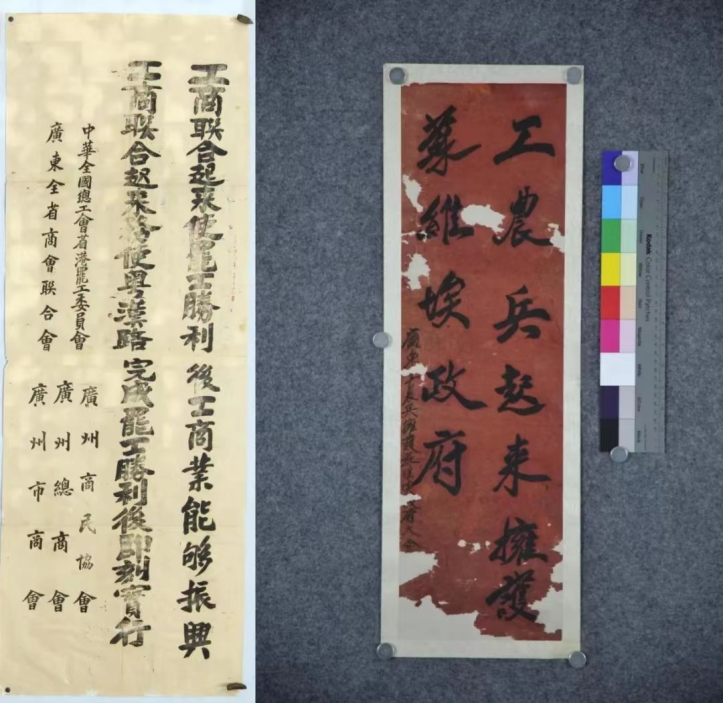 工商联合起来使罷工勝利後工商業能够振興
工商联合起来務使粤漢路完成罷工勝利後即刻實行
中華全國總工會省港罷工委員會
廣東全省商會聯合會
廣州商民協會
廣州總商會
廣州市商會
工農兵起来擁護
蘇維埃政府
廣東工農兵擁護
大会
Kodak Color Control Patches